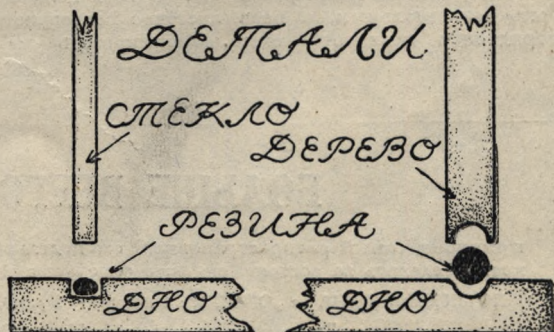 ДЕТАЛИ
СТЕКЛО
ДЕРЕВО
РЕЗИНА
ДНО ДНО